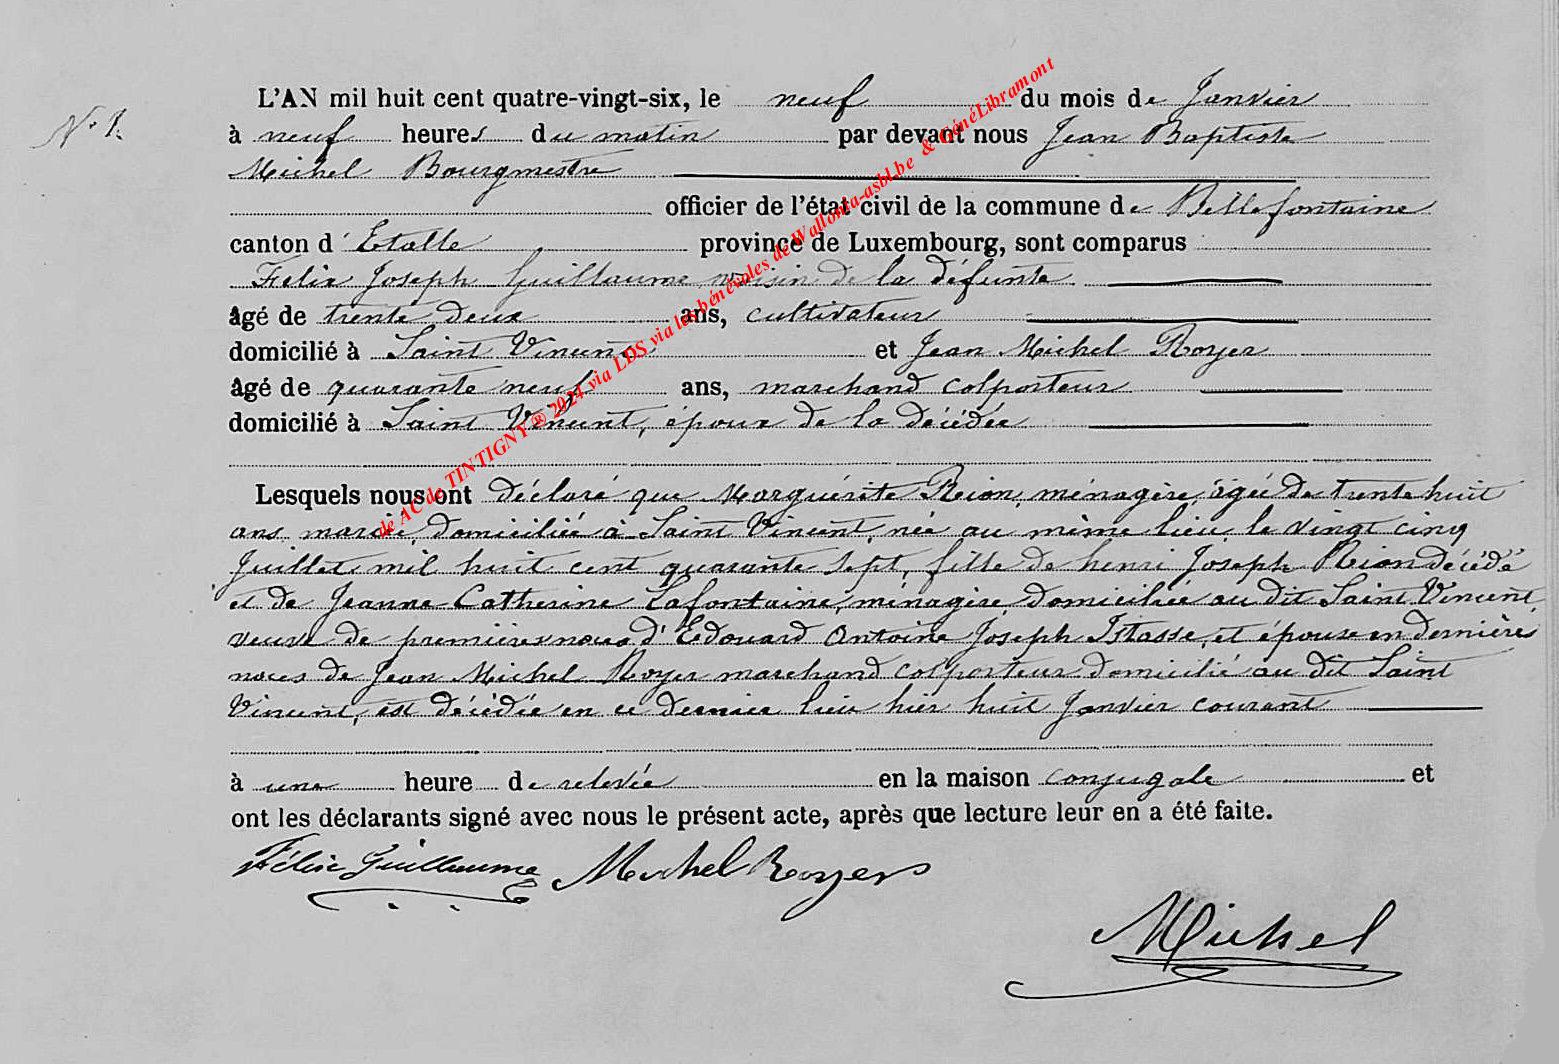 N° 1.
L'AN mil huit cent quatre-vingt-six, le neuf du mois de Janvier
à neuf heures du matin par devant nous Jean Baptiste
Michel Bourgmestre
officier de l'état civil de la commune de Bellefontaine
canton d'Etalle province de Luxembourg, sont comparus
Felix Joseph Guillaume voisin de la défunte
âgé de trente deux ans, cultivateur
domicilié à Saint Vincent et Jean Michel Royer
âgé de quarante neuf ans, marchand colporteur
domicilié à Saint Vincent, époux de la décédée
Lesquels nous ont déclaré que Marguérite Rion, ménagère, âgée de trente huit
ans, mariée, domiciliée à Saint Vincent, née au même lieu, le vingt cinq
Juillet mil huit cent quarante sept, fille de henri Joseph Rion décédé
et de Jeanne Catherine Lafontaine, ménagère, domiciliée au dit Saint Vincent,
veuve de premières noces d'Edouard Antoine Joseph Istasse, et épouse en dernières
noces de Jean Michel Royer marchand colporteur domicilié au dit Saint
Vincent, est décédée en ce dernier lieu hier huit Janvier courant
à une heure de relevée en la maison conjugale et
ont les déclarants signé avec nous le présent acte, après que lecture leur en a été faite.
Félix Guillaume Michel Royers
Michel
de AC de TINTIGNY ® 2024 via LDS via les bénévoles de Wallonia-asbl.be & GénéLibramont